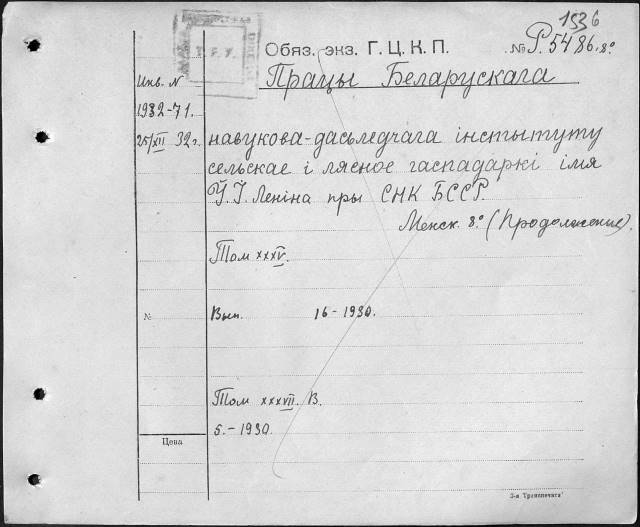 1536
Обяз. экз. Г.Ц.К.П. № Р. 5486. 8°
Працы Беларускага
Инв. N
1932-71.
25/XII 32 г.
навукова-дасьледчага інстытуту
сельскае і лясное гаспадаркі імя
У.І. Леніна пры СНК БССР.
Менск. 8° (Продолжение).
Том XXXV.
№
Вып. 16-1930.
Том XXXVII. В.
5.-1930.
Цена